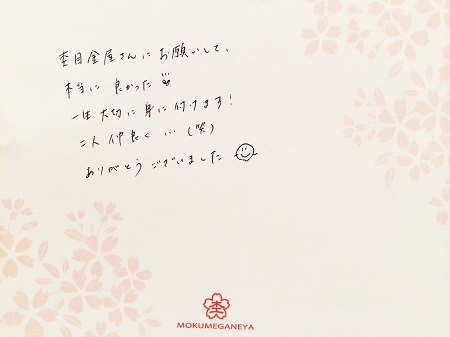 杢目金屋さんにお願いして、
本当に良かった
一生大切に身に付けます!
二人仲良く…(笑)
ありがとうございました
杢
MOKUMEGANEYA